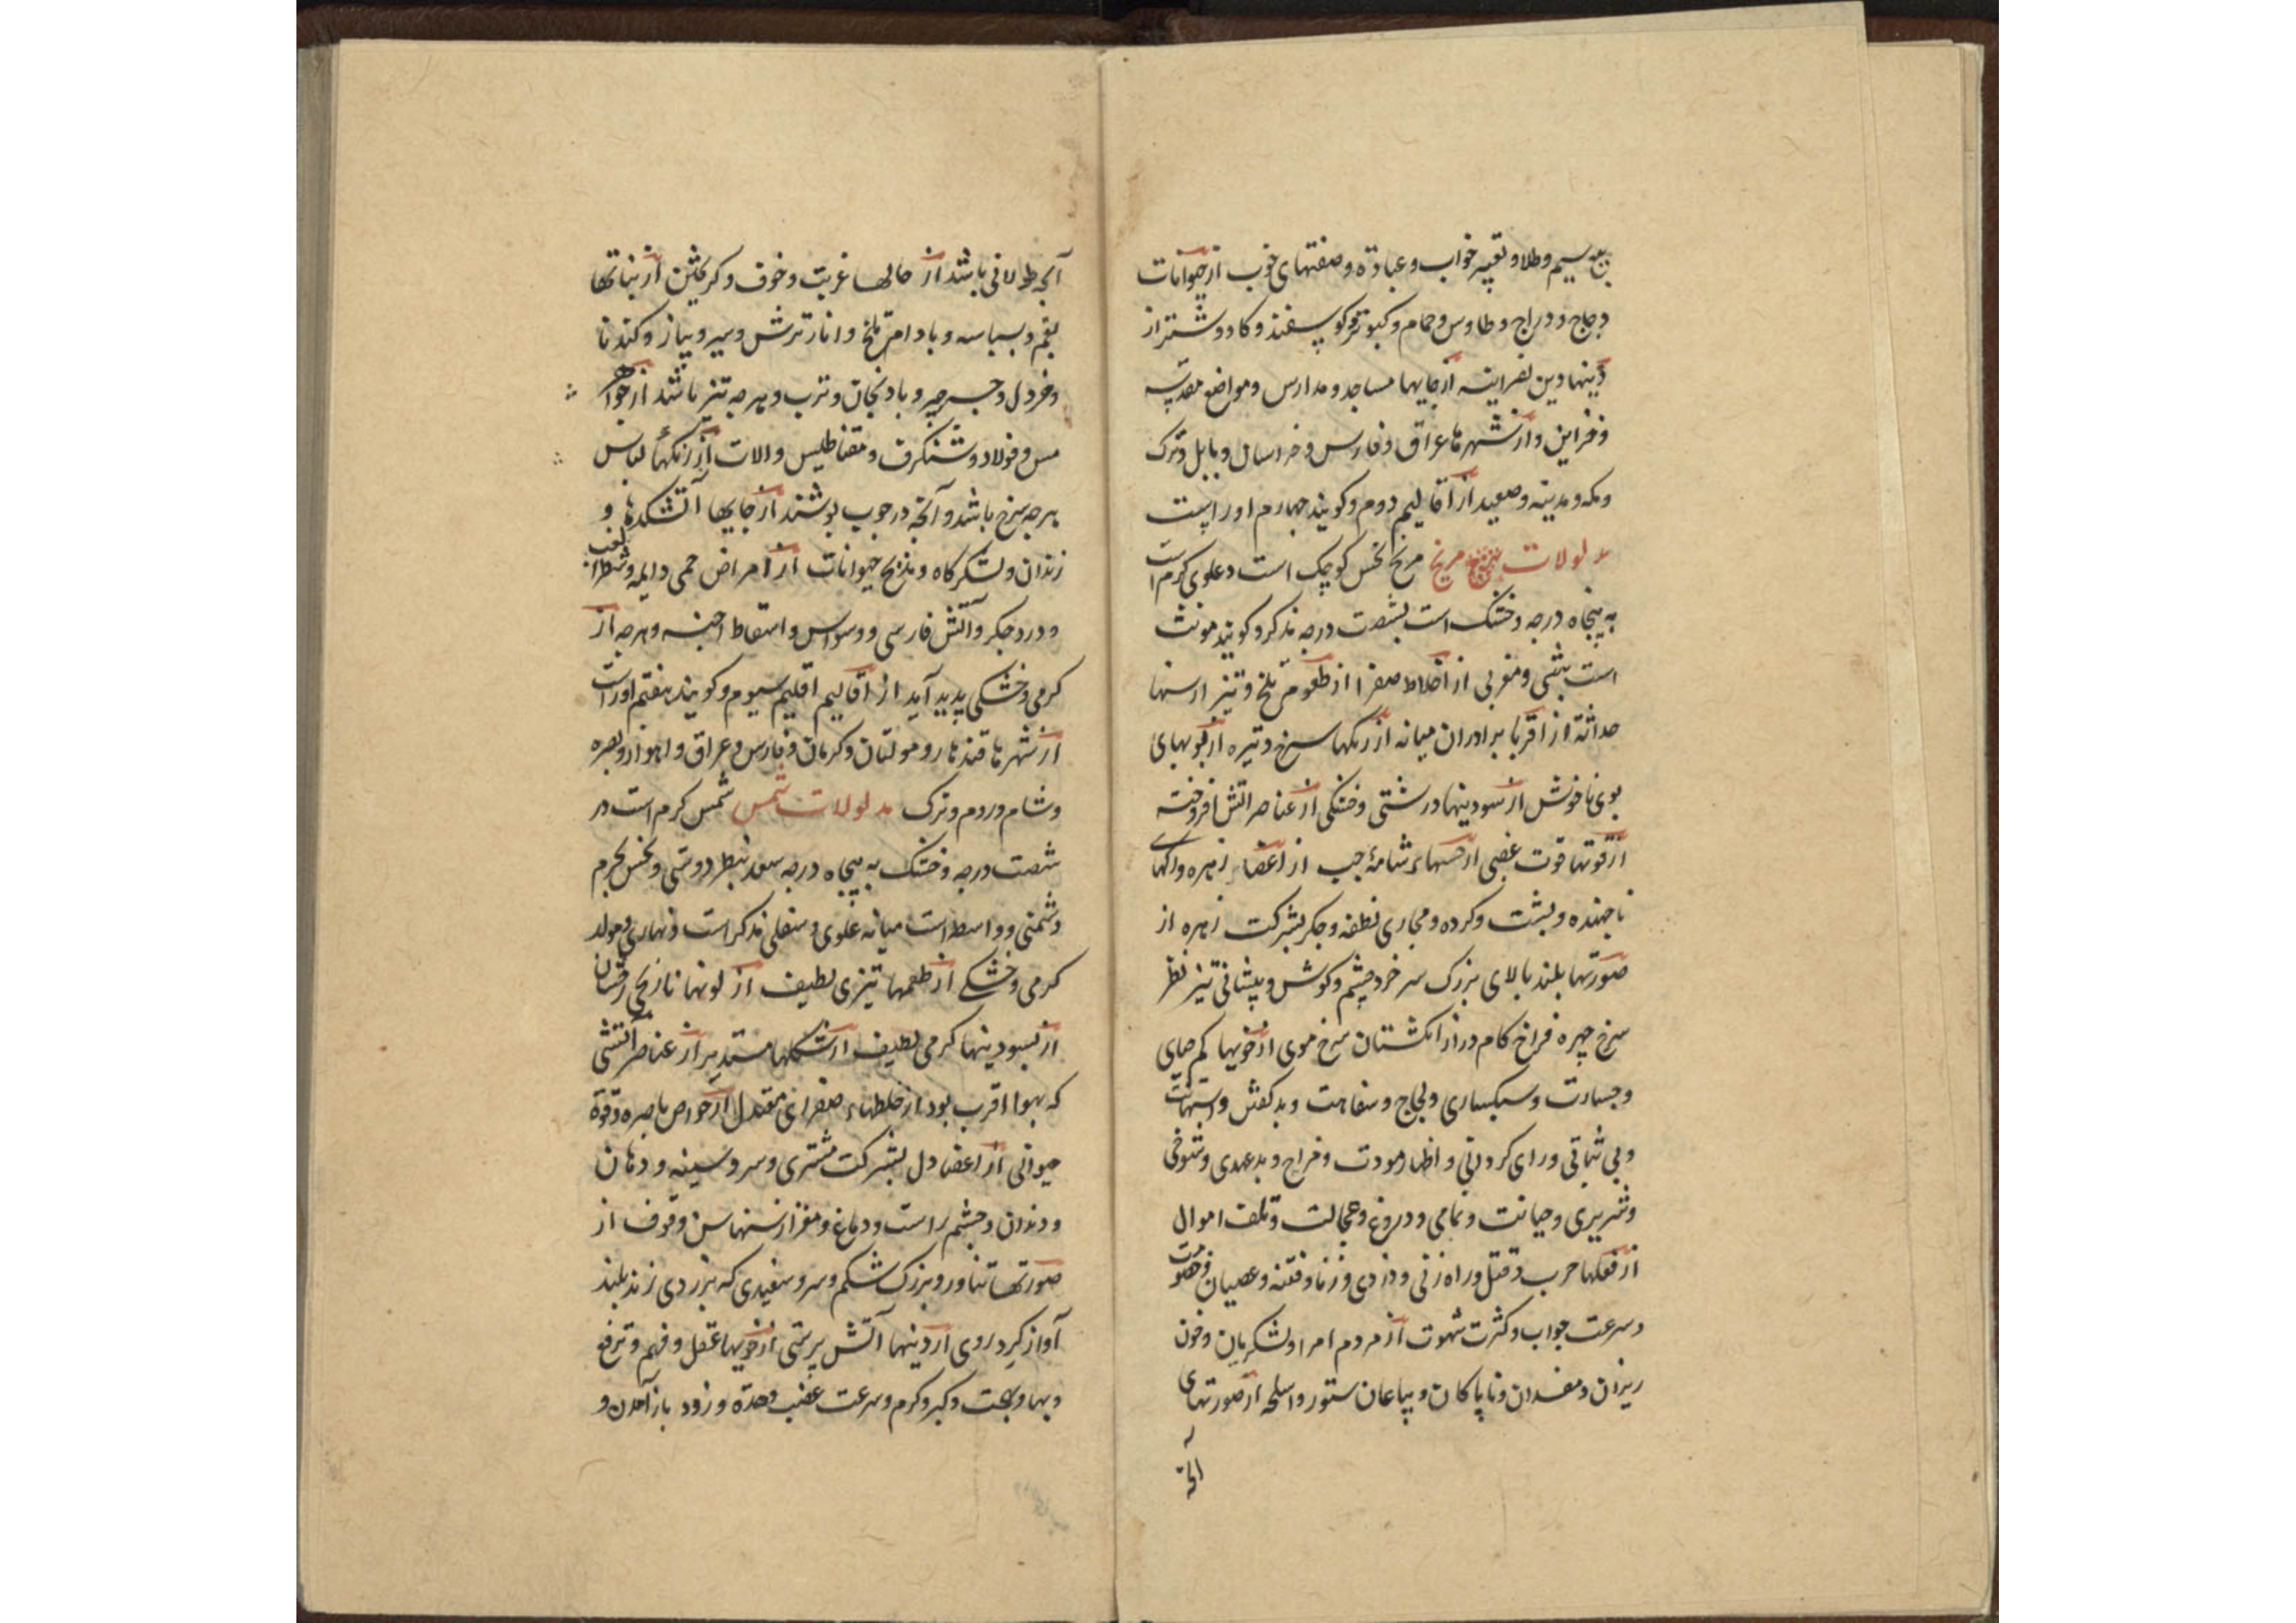 بیع سیم و طلا و تعبیر خواب و عبادة و صفتهای خوب از حیوانات
دجاج و دراج و طاوس و حمام و کبوتر و کوسفند و کاو و شتر از
دینها دین نصرانیه از جایها مساجد و مدارس و مواضع مقدسه
و از شهرها عراق و فارس و خراسان و بابل و ترک
و مکه و مدینه و صعید از اقالیم دوم و کویند چهارم اوراست
مدلولات مریخ مریخ نحس کوچک است و علوی کرم است
به پنجاه درجه و خشک است بشصت درجه مذکر و کویند مونث
است شبی و مغربی از اخلاط صفرا از طعوم تلخ و تیز از سنها
حداثة از اقربا برادران میانه از رنکها سرخ و تیره از بویهای
بوی ناخوش از بسودینها درشتی و خشکی از عناصر اتش افروخته
از قوتها قوت غضبی از حسهاء شامهٔ چپ از اعضا زهره و رکهای
ناجهنده و پشت و کرده و مجاری نطفه و جکر بشرکت زهره از
صورتها بلند بالای بزرک سر خرد چشم و کوش و پیشانی تیز نظر
سرخ چهره فراخ کام دراز انکشتان سرخ موی از خویها کم حیای
و جسارت و سبکساری و لجاج و سفاهت و بد کفتن
و بی ثباتی و رای کردانی و اظهار مودت و مزاح و بدعهدی و شوخی
و شریری و خیانت و نمامی و دروغ و عجالت و تلف اموال
از فعلها حرب و قتل و راه زنی و دزدی و زنا و فتنه و عصیان و خصومت
و سرعت جواب و کثرت شهوت از مردم امرا و لشکریان و خون
ریزان و مفسدان و ناپاکان و بیاعان ستور و اسلحه از صورتهای
آنچه
آنچه طولانی باشد از حالها غربت و خوف و کریختن از نباتها
بقم و بسباسه و بادام تلخ و انار ترش و سیر و پیاز و کندنا
و خردل و جرجیر و بادنجان و ترب و هرچه تیز باشد از جواهر
مس و فولاد و شنکرف و مقناطیس و الات از رنکها لباس
هرچه سرخ باشد و آنچه در حرب پوشند از جایها آتشکدها و
زندان و لشکرکاه و مذبح حیوانات از امراض حمی دایمه و شطر الغب
و درد جکر و آتش فارسی و وسواس و اسقاط اجنه و هرچه از
کرمی و خشکی پدید آید از اقالیم اقلیم سیوم و کویند هفتم اوراست
از شهرها قندهار و مولتان و کرمان و فارس و عراق و اهواز و بصره
و شام و روم و ترک مدلولات شمس شمس کرم است در
شصت درجه و خشک به پنجاه درجه سعد بنظر دوستی و نحس بجرم
دشمنی و واسطه است میانه علوی و سفلی مذکر است و نهاری و مولد
کرمی و خشکی از طعمها تیزی لطیف از لونها نارنجی رخشان
از بسودینها کرمی لطیف از شکلها مستدیر از عناصر آتشی
که بهوا اقرب بود از خلطهاء صفرای معتدل از حواس باصره و قوة
حیوانی از اعضا دل بشرکت مشتری و سر و سینه و دهان
و دندان و چشم راست و دماغ و مغز از سنها سن وقوف از
صورتها تناور و بزرک شکم و سر و سفیدی که بزردی زند بلند
آواز کرد روی از دینها آتش پرستی از خویها عقل و فهم و ترفع
و بها و بهجت و کبر و کرم و سرعت غضب و حدة و زود باز آمدن و